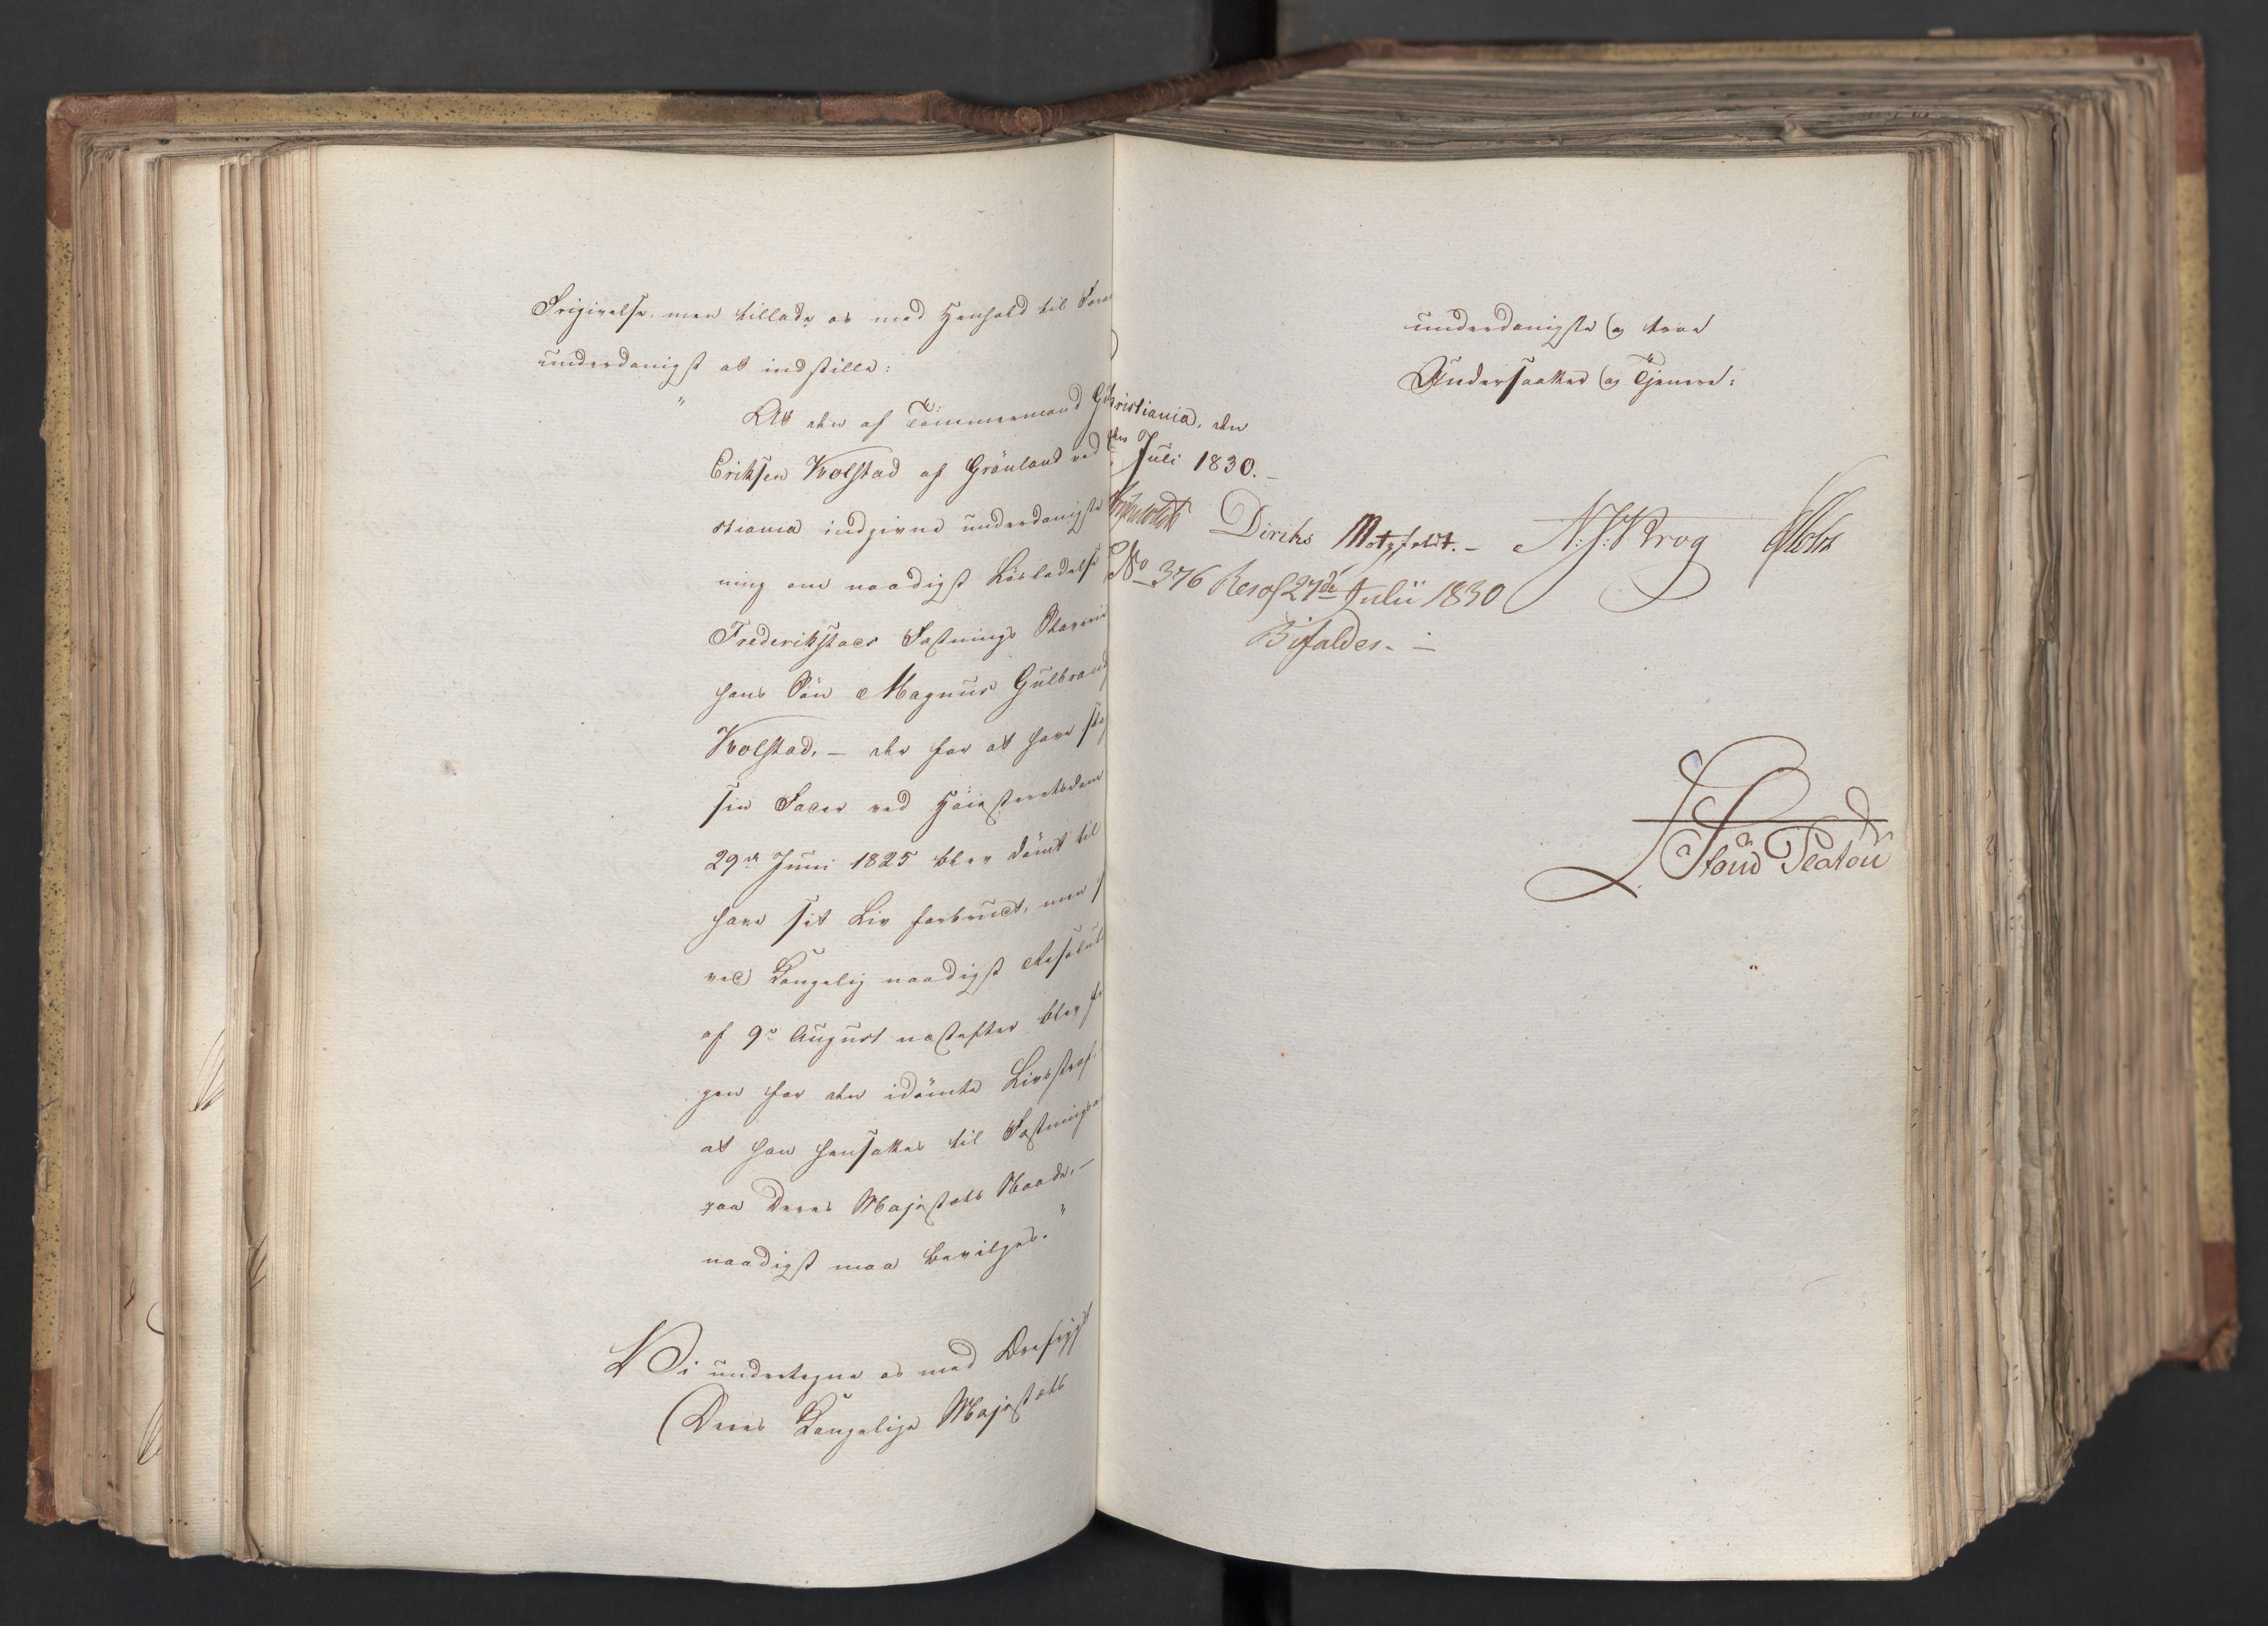 Frigivelse, men tillade os med Henhold til For
underdanigst at indstille:
" At den af Tömmermand G
Eriksen Kolstad af Grönland ved
stiania indgivne underdanigste
ning om naadigst Lösladelse
Frederikstads Fæstnings Slaverie
hans Sön Magnus Gulbrand
Kolstad, – der for at have sla
sin Fader ved Höiesteretsdom
29de Juni 1825 blev dömt til
have sit Liv forbrudt, men
ved Kongelig naadigst Resoluti
af 9de August næstefter blev
gen for den idömte Livsstraf,
at han hensættes til Fæstnings
paa Deres Majestæts Naade, –
naadigst maa bevilges."
Vi undertegne os med Dybeste
Deres Kongelige Majestæts
underdanigste og troe
Undersaatter og Tjenere:
hristiania, den
Juli 1830. –
Diriks Motzfeldt. – N. J. Krog
No 376 Resol 27de Julii 1830
Bifaldes. –
Stoud Platou